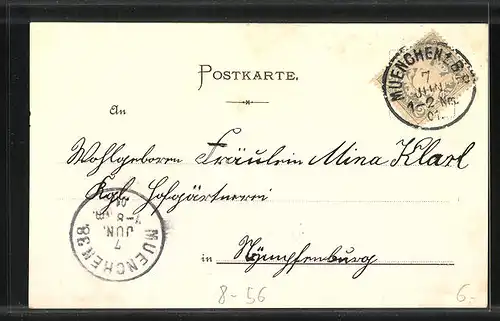 MUENCHEN 1. B.P.
7
JUN.
1-2 Nm.
01.
POSTKARTE.
An
Wohlgeboren Fräulein Mina Klarl
Kgl. Hofgärtnerei
in Nÿmpfenburg
MUENCHEN 38.
7
JUN.
7-8 Nm.
01
8-56
6.-